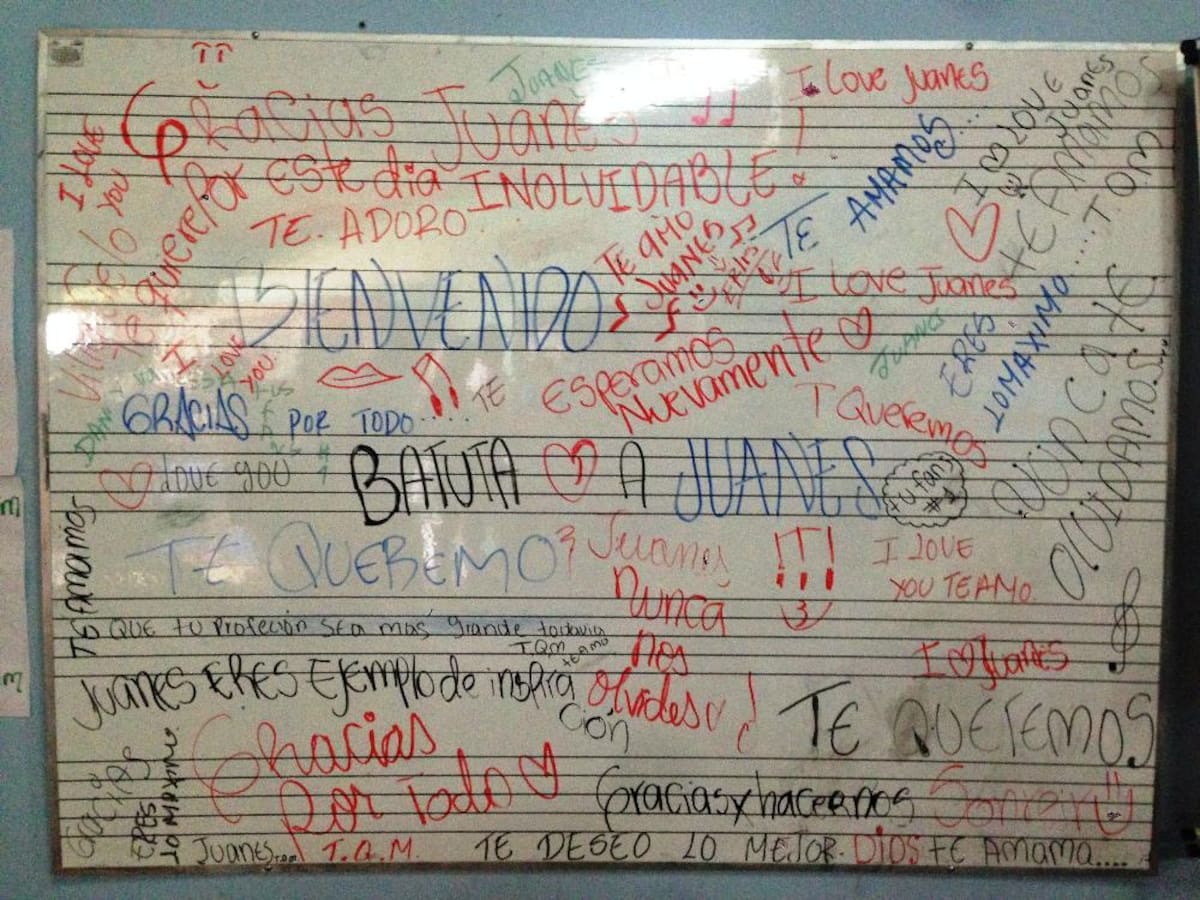 JUANES
I love Juanes
Gracias Juanes
Por este dia INOLVIDABLE!
I LOVE YOU
TE ADORO
TE AMO JUANES
TE AMAMOS....
I ♡ LOVE JUANES
TE AMAMOS
....T.Q.M
I LOVE Juanes
BIENVENIDO
TE esperamos Nuevamente ♡
JUANES
ERES LO MAXIMO
I LOVE YOU.
T Queremos
GRACIAS POR TODO.....
♡ LOVE YOU
BATUTA ♡ A JUANES
tu fans #1
NUNCA TE OLVIDAMOS....
TE AMAMOS
TE QUEREMOS
Juanes Nunca nos olvides!
!!!
I LOVE YOU TE AMO.
QUE tu Profeción SEA mas grande todavia
T.Q.M TE AMO
JuanES ERES Ejemplo de inspira
ción
I ♡ Juanes
TE QUEREMOS
Gracias Por Todo ♡
Gracias x hacernos Sonreir
GRACIAS
ERES LO MAXIMO
Juanes...
T.Q.M.
TE DESEO LO MEJOR. DIOS tE Amama....